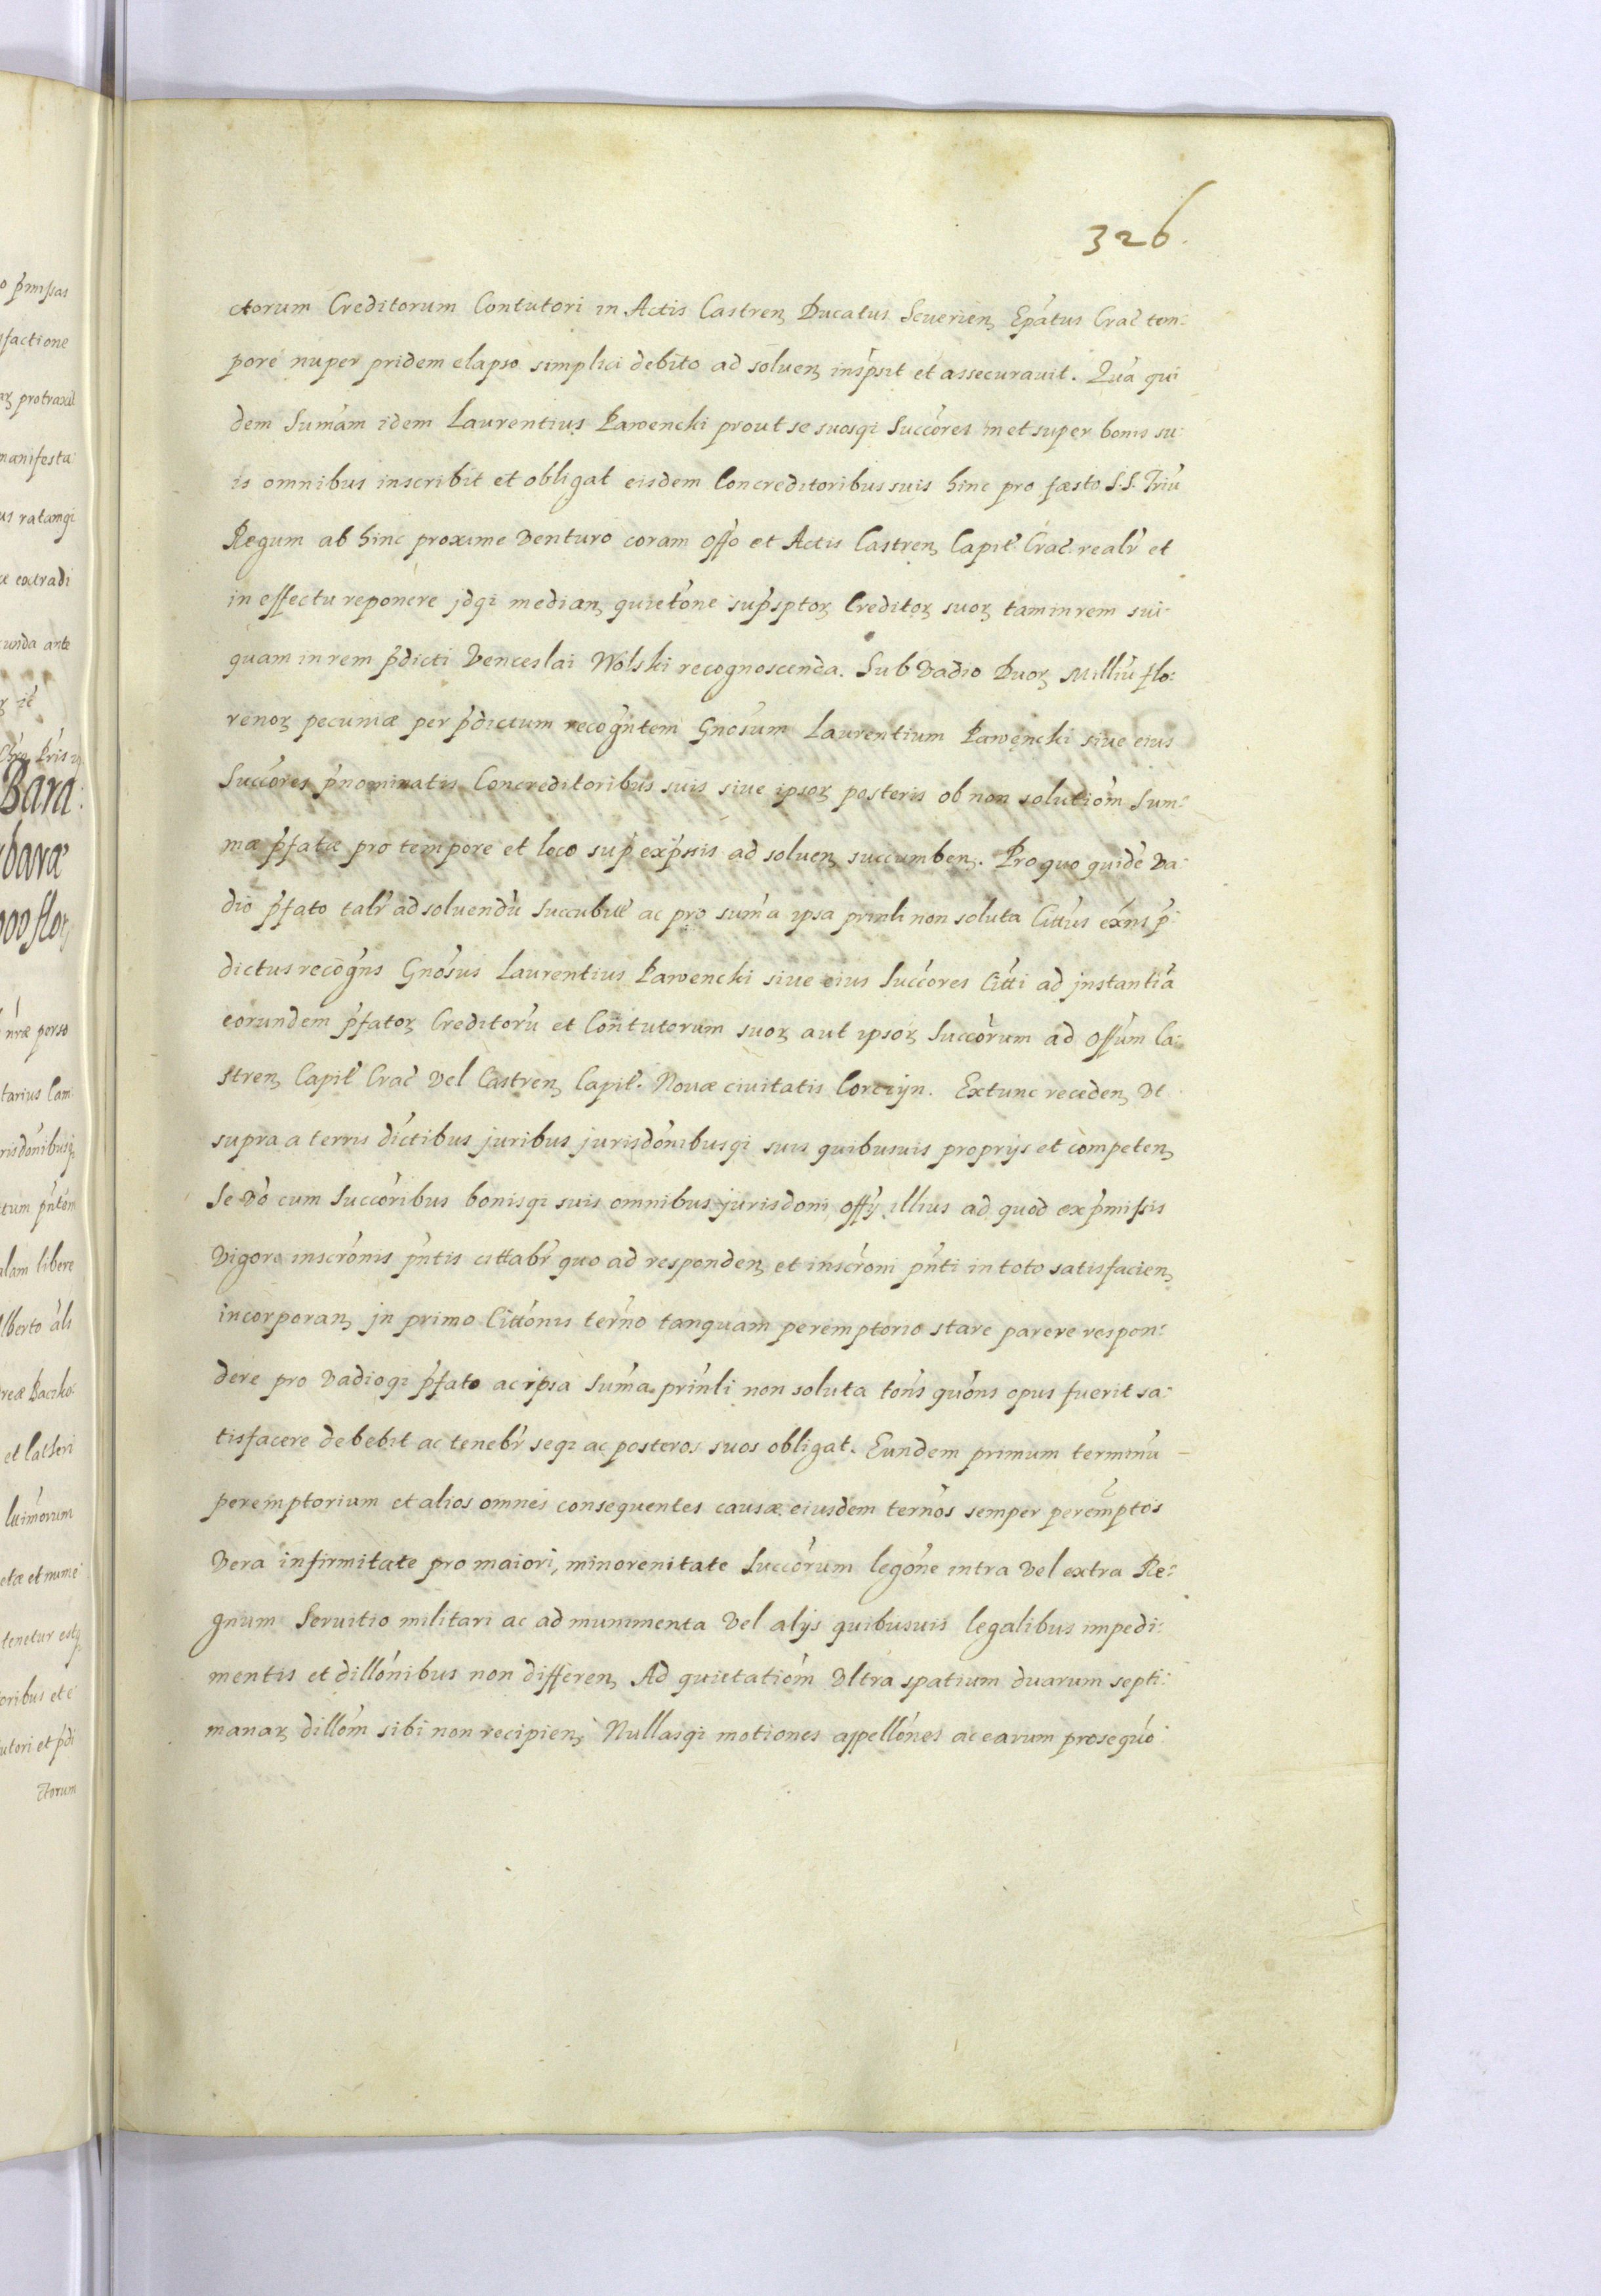 326.
o p̃missas
ctorum Creditorum Contutori in Actis Castren, Ducatus Seuerien, Ep̃atus Crac̃ tem:
sfactione
pore nuper pridem elapso simplici debito ad soluen, insp̃sit et assecurauit. Quã qui
protraxit
dem Sum̃am idem Laurentius Pawencki prout se suosqi Succ̃ores in et super bonis su:
manifesta
is omnibus inscribit et obligat eisdem Concreditoribus suis hinc pro fæsto S.S. Triũ
us ratamqi
Regum ab hinc proxime Venturo coram Offo et Actis Castren, Capit̃ Crac̃ realr̃ et
extradi
in effectu reponere jdqi median, quiet̃one sup̃sptoꝝ Creditoꝝ suoꝝ tam in rem sui
cunda ante
quam in rem p̃dicti Venceslai Wolski recognoscenda. Sub Vadio Duoꝝ Milliũ flo:
renoꝝ pecuniæ per p̃dictum recog̃ntem Gnõsum Laurentium Pawencki siue eius
Succ̃ores p̃nominatis Concreditoribus suis siue ipsoꝝ posteris ob non solutiõm Sum:
Bara:
mæ p̃fatæ pro tempore et loco sup̃ exp̃ssis ad soluen, succumben,. Pro quo quidẽ Va:
baræ
dio p̃fato talr̃ ad soluendũ Succubuẽ ac pro sum̃a ipsa prinli non soluta Citt̃us ex̃ns p̃:
000 flor,
dictus recog̃ns Gnõsus Laurentius Pawencki siue eius Succ̃ores Citt̃i ad jnstantiã
eorundem p̃fatoꝝ Creditorũ et Cont̃utorum suoꝝ aut ipsoꝝ Succ̃orum ad Off̃um Ca:
nr̃æ perso
stren, Capit̃ Crac̃ Vel Castren, Capit̃. Nouæ ciuitatis Corczyn. Extunc receden, Vt
tarius Cam
supra a terris dic̃tibus juribus jurisdõnibusqi suis quibusuis proprijs et competen,
risdõnibusq,
Se Võ cum Succ̃oribus bonisqi suis omnibus jurisdoni, offij illius ad quod ex p̃missis
tum p̃ntem
Vigore inscrõnis p̃ntis cittabr̃ quo ad responden, et inscrõni p̃nti in toto satisfacien,
alam libere
incorporan, jn primo Citt̃onis ter̃no tanquam peremptorio stare parere respon:
lberto als
dere pro Vadioqi p̃fato ac ipsa Sum̃a prinli non soluta tõns quõns opus fuerit sa:
reæ Baczko:
tisfacere debebit ac tenebr̃ seqi ac posteros suos obligat. Eundem primum terminũ
et Catheri
peremptorium et alios omnes consequentes causæ eiusdem ter̃nos semper peremp̃tos
luimorum
Vera infirmitate pro maiori, minorenitate Succ̃orum legõne intra Vel extra Re:
etæ et nume
gnum Seruitio militari ac ad munimenta Vel alijs quibusuis legalibus impedi:
tenetur estq,
mentis et dillõnibus non differen, Ad quietatiõm Vltra spatium duarum septi:
oribus et e
manaꝝ dillõm sibi non recipien, Nullasqi motiones appellõnes ac earum prosequõ:
utori et p̃di
ctorum